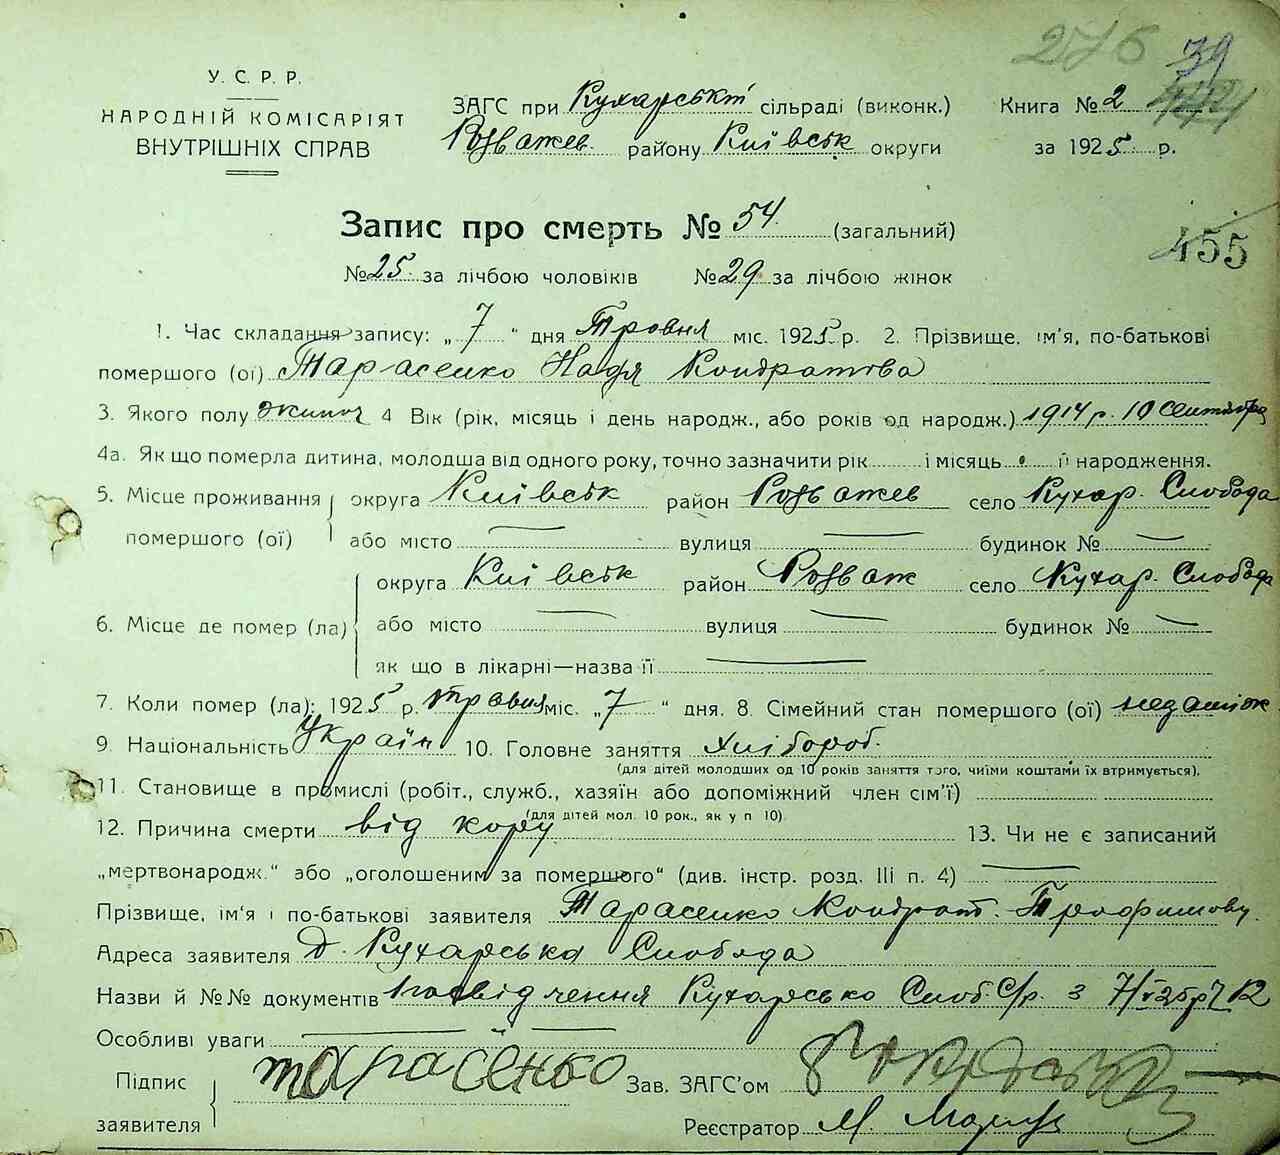 276 39
У. С. Р. Р.
НАРОДНІЙ КОМІСАРІЯТ
ВНУТРІШНІХ СПРАВ
ЗАГС при Кухарській сільраді (виконк.) Книга № 2
Розважев. району Київськ округи за 1925 р.
Запис про смерть № 54 (загальний)
455
№ 25 за лічбою чоловіків № 29 за лічбою жінок
1. Час складання запису: „7“ дня Травня міс. 1925 р. 2. Прізвище, ім'я, по-батькові
помершого (ої) Тарасенко Надя Кондратова
3. Якого полу жиноч 4 Вік (рік, місяць і день народж., або років од народж.) 1914 р. 10 сентября
4а. Як що померла дитина, молодша від одного року, точно зазначити рік і місяць її народження.
5. Місце проживання помершого (ої) округа Київськ район Розважев село Кухар. Слобода
або місто — вулиця — будинок № —
6. Місце де помер (ла) округа Київськ район Розваж село Кухар. Слобода
або місто — вулиця — будинок № —
як що в лікарні—назва її —
7. Коли помер (ла): 1925 р. травня міс. „7“ дня. 8. Сімейний стан помершого (ої) незаміж
9. Національність Україн 10. Головне заняття хлібороб.
(для дітей молодших од 10 років заняття того, чиїми коштами їх втримується).
11. Становище в промислі (робіт., служб., хазяїн або допоміжний член сім'ї)
(для дітей мол. 10 рок., як у п 10).
12. Причина смерти від кору 13. Чи не є записаний
„мертвонародж.“ або „оголошеним за помершого“ (див. інстр. розд. III п. 4) —
Прізвище, ім'я і по-батькові заявителя Тарасенко Кондрат. Трофимову.
Адреса заявителя д. Кухарська Слобода
Назви й №№ документів Посвідчення Кухарсько Слоб. С/р. з 7/V 25р
Особливі уваги —
Підпис заявителя тарасенко Зав. ЗАГС'ом
Реєстратор М.